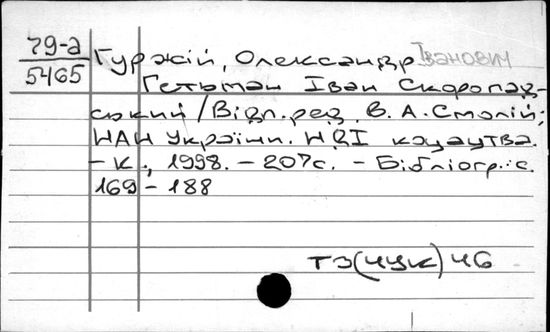 79-а
5465
Гуржій, Олександр Іванович
Гетьман Іван Скоропад-
ський / Відп. ред. В. А. Смолій;
НАН України. НДІ козацтва.
– К., 1998. – 207с. – Бібліогр.: с.
169 – 188
ТЗ(4УК)46